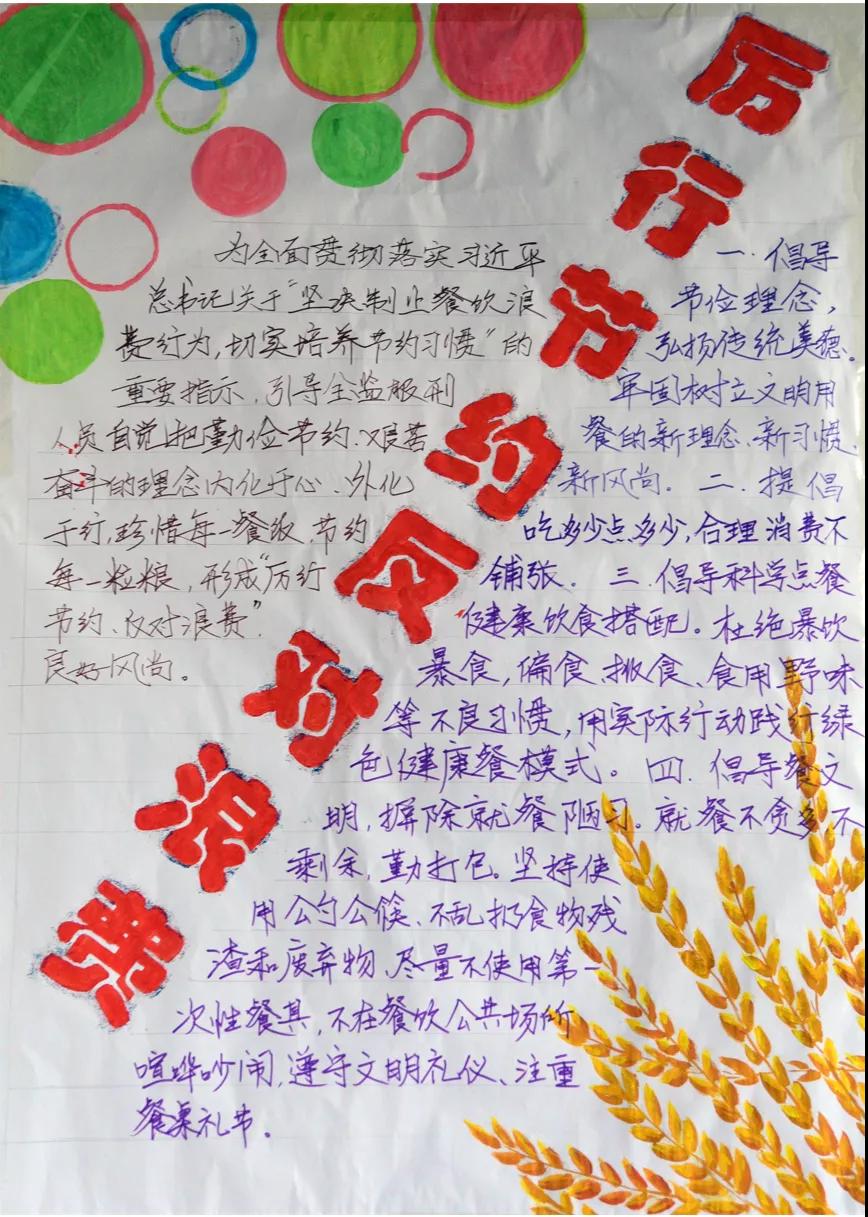 厉行节约反对浪费
为全面贯彻落实习近平
总书记关于"坚决制止餐饮浪
费行为，切实培养节约习惯"的
重要指示，引导全监服刑
人员自觉把勤俭节约、艰苦
奋斗的理念内化于心、外化
于行，珍惜每一餐饭，节约
每一粒粮，形成"厉行
节约、反对浪费"
良好风尚。
一．倡导
节俭理念，
弘扬传统美德。
牢固树立文明用
餐的新理念、新习惯、
新风尚．二．提倡
吃多少点多少，合理消费不
铺张．三．倡导科学点餐
健康饮食搭配。杜绝暴饮
暴食，偏食、挑食、食用野味
等不良习惯，用实际行动践行绿
色健康餐模式。四．倡导餐文
明，摒除就餐陋习。就餐不贪多不
剩余，勤打包。坚持使
用公勺公筷、不乱扔食物残
渣和废弃物、尽量不使用第一
次性餐具，不在餐饮公共场所
喧哗吵闹，遵守文明礼仪、注重
餐桌礼节．